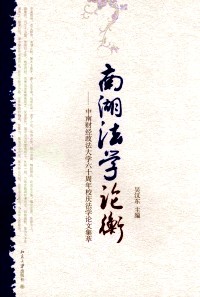 南湖法学论衡
——中南财经政法大学六十周年校庆法学论文集萃
吴汉东 主编
北京大学出版社